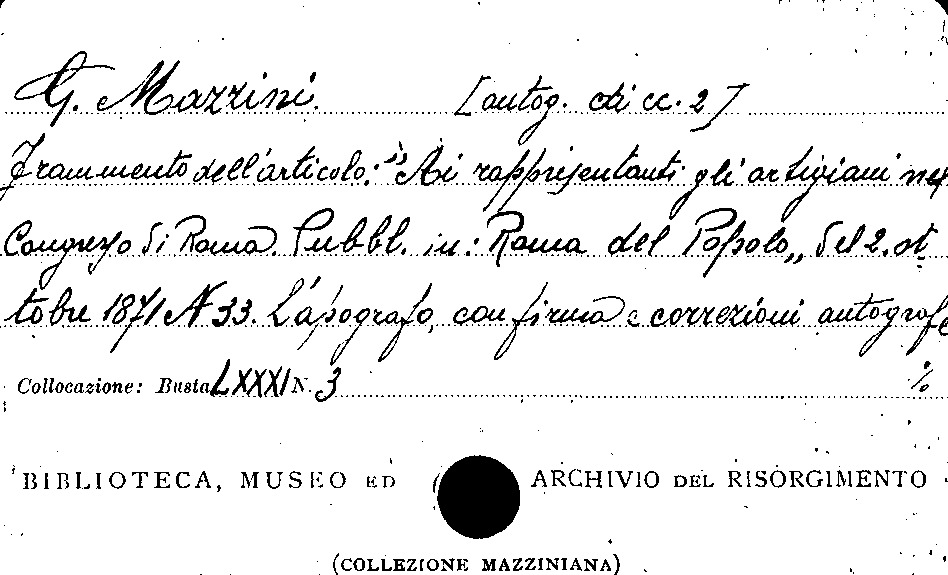 G. Mazzini. [autog. di cc. 2]
Frammento dell'articolo: "Ai rappresentanti gli artigiani nel
Congresso di Roma. Pubbl. in: Roma del Popolo,, del 2. ot
tobre 1871 N 33. L'apografo, con firma e correzioni autografe
Collocazione: Busta LXXXI N. 3 %
BIBLIOTECA, MUSEO ED ARCHIVIO DEL RISORGIMENTO
(COLLEZIONE MAZZINIANA)